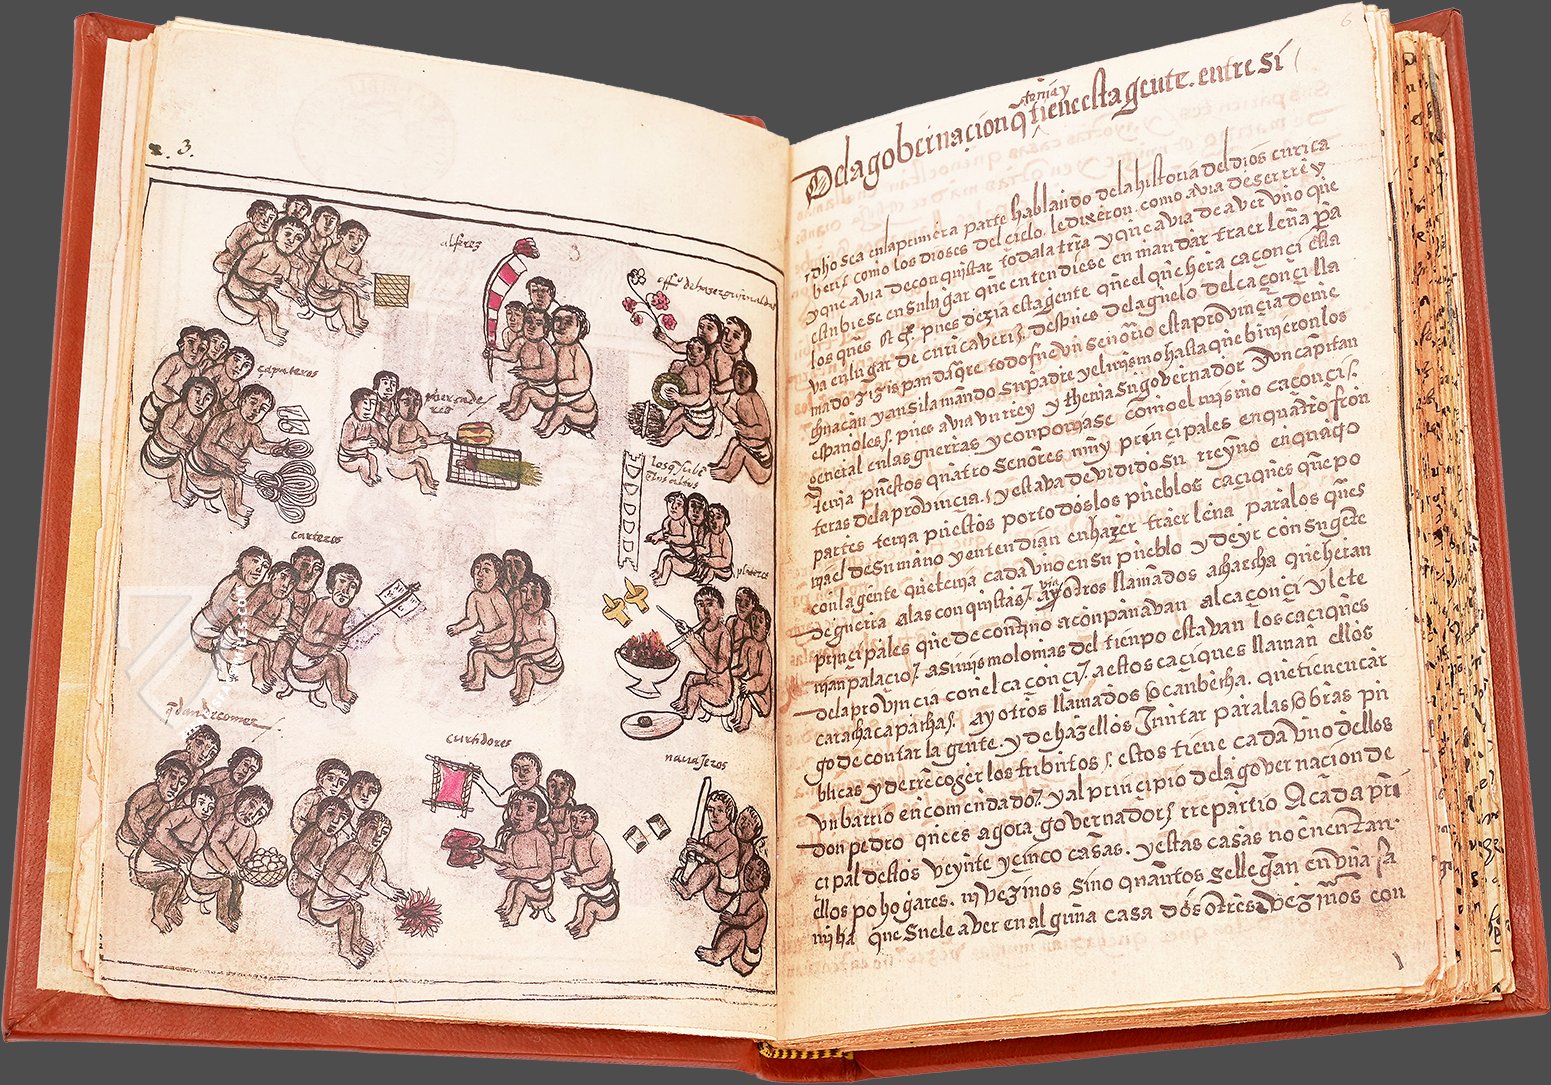 3.
alferez
offº de hazer guirnaldas
çapateros
mercade
res
los q̃ subē
carteros
plateros
q̃ dan de comer
curtidores
nauajeros
6
tenia y
De la gobernaçion q̃ tiene esta gente. entre si
dho sea en la primera parte hablando de la historia del dios curica
beri como los dioses del cielo le dixeron. como avia de ser rrey
y que avia de conquistar toda la trra y que avia de aver uno que
estubiese en su lugar que entendiese en mandar traer leña pa
los ques &c. pues dezia esta gente que el que hera caçonçi esta
va en lugar de curicaveri. despues del aguelo del caçonçi lla
mado zizispandaquare todo fue un señorio esta provinçia de me
chuacan y ansi la mando su padre y el mismo hasta que binieron los
españoles. pues avia un rrey y thenia su governador y un capitan
general en las guerras y componiase como el mismo caçonçi.
tenia puestos quatro señores muy principales en quatro fron
teras de la provinçia. y estava devidido su rreyno en quatro
partes tenia puestos por todos los pueblos caçiques que po
nia el de su mano y entendian en hazer traer leña para los ques
con la gente que tenia cada uno en su pueblo y de yr con su gente
de guerra a las conquistas. avia
ay otros llamados achaecha que heran
principales que de contino acompañavan al caçonçi y le te
nian palaçio. asimismo lo mas del tienpo estavan los caçiques
de la provinçia con el caçonçi. a estos caçiques llaman ellos
carachacapacha. ay otros llamados ocanbecha. que tienen car
go de contar la gente. y de hazellos juntar para las obras pu
blicas y de rrecoger los tributos. estos tiene cada uno dellos
un barrio encomendado. y al principio de la governaçion de
don pedro que es agora governador. rrepartio a cada prin
çipal destos veynte y çinco casas. y estas casas no cuentan
ellos por hogares. ni vezinos sino quantos se llegan en una fa
milia que suele aver en alguna casa dos o tres vezinos con